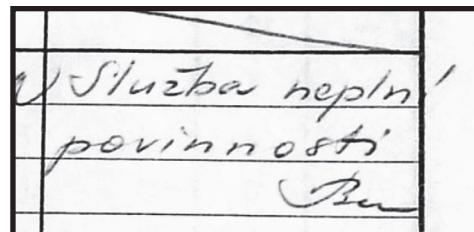 Služba neplní
povinnosti